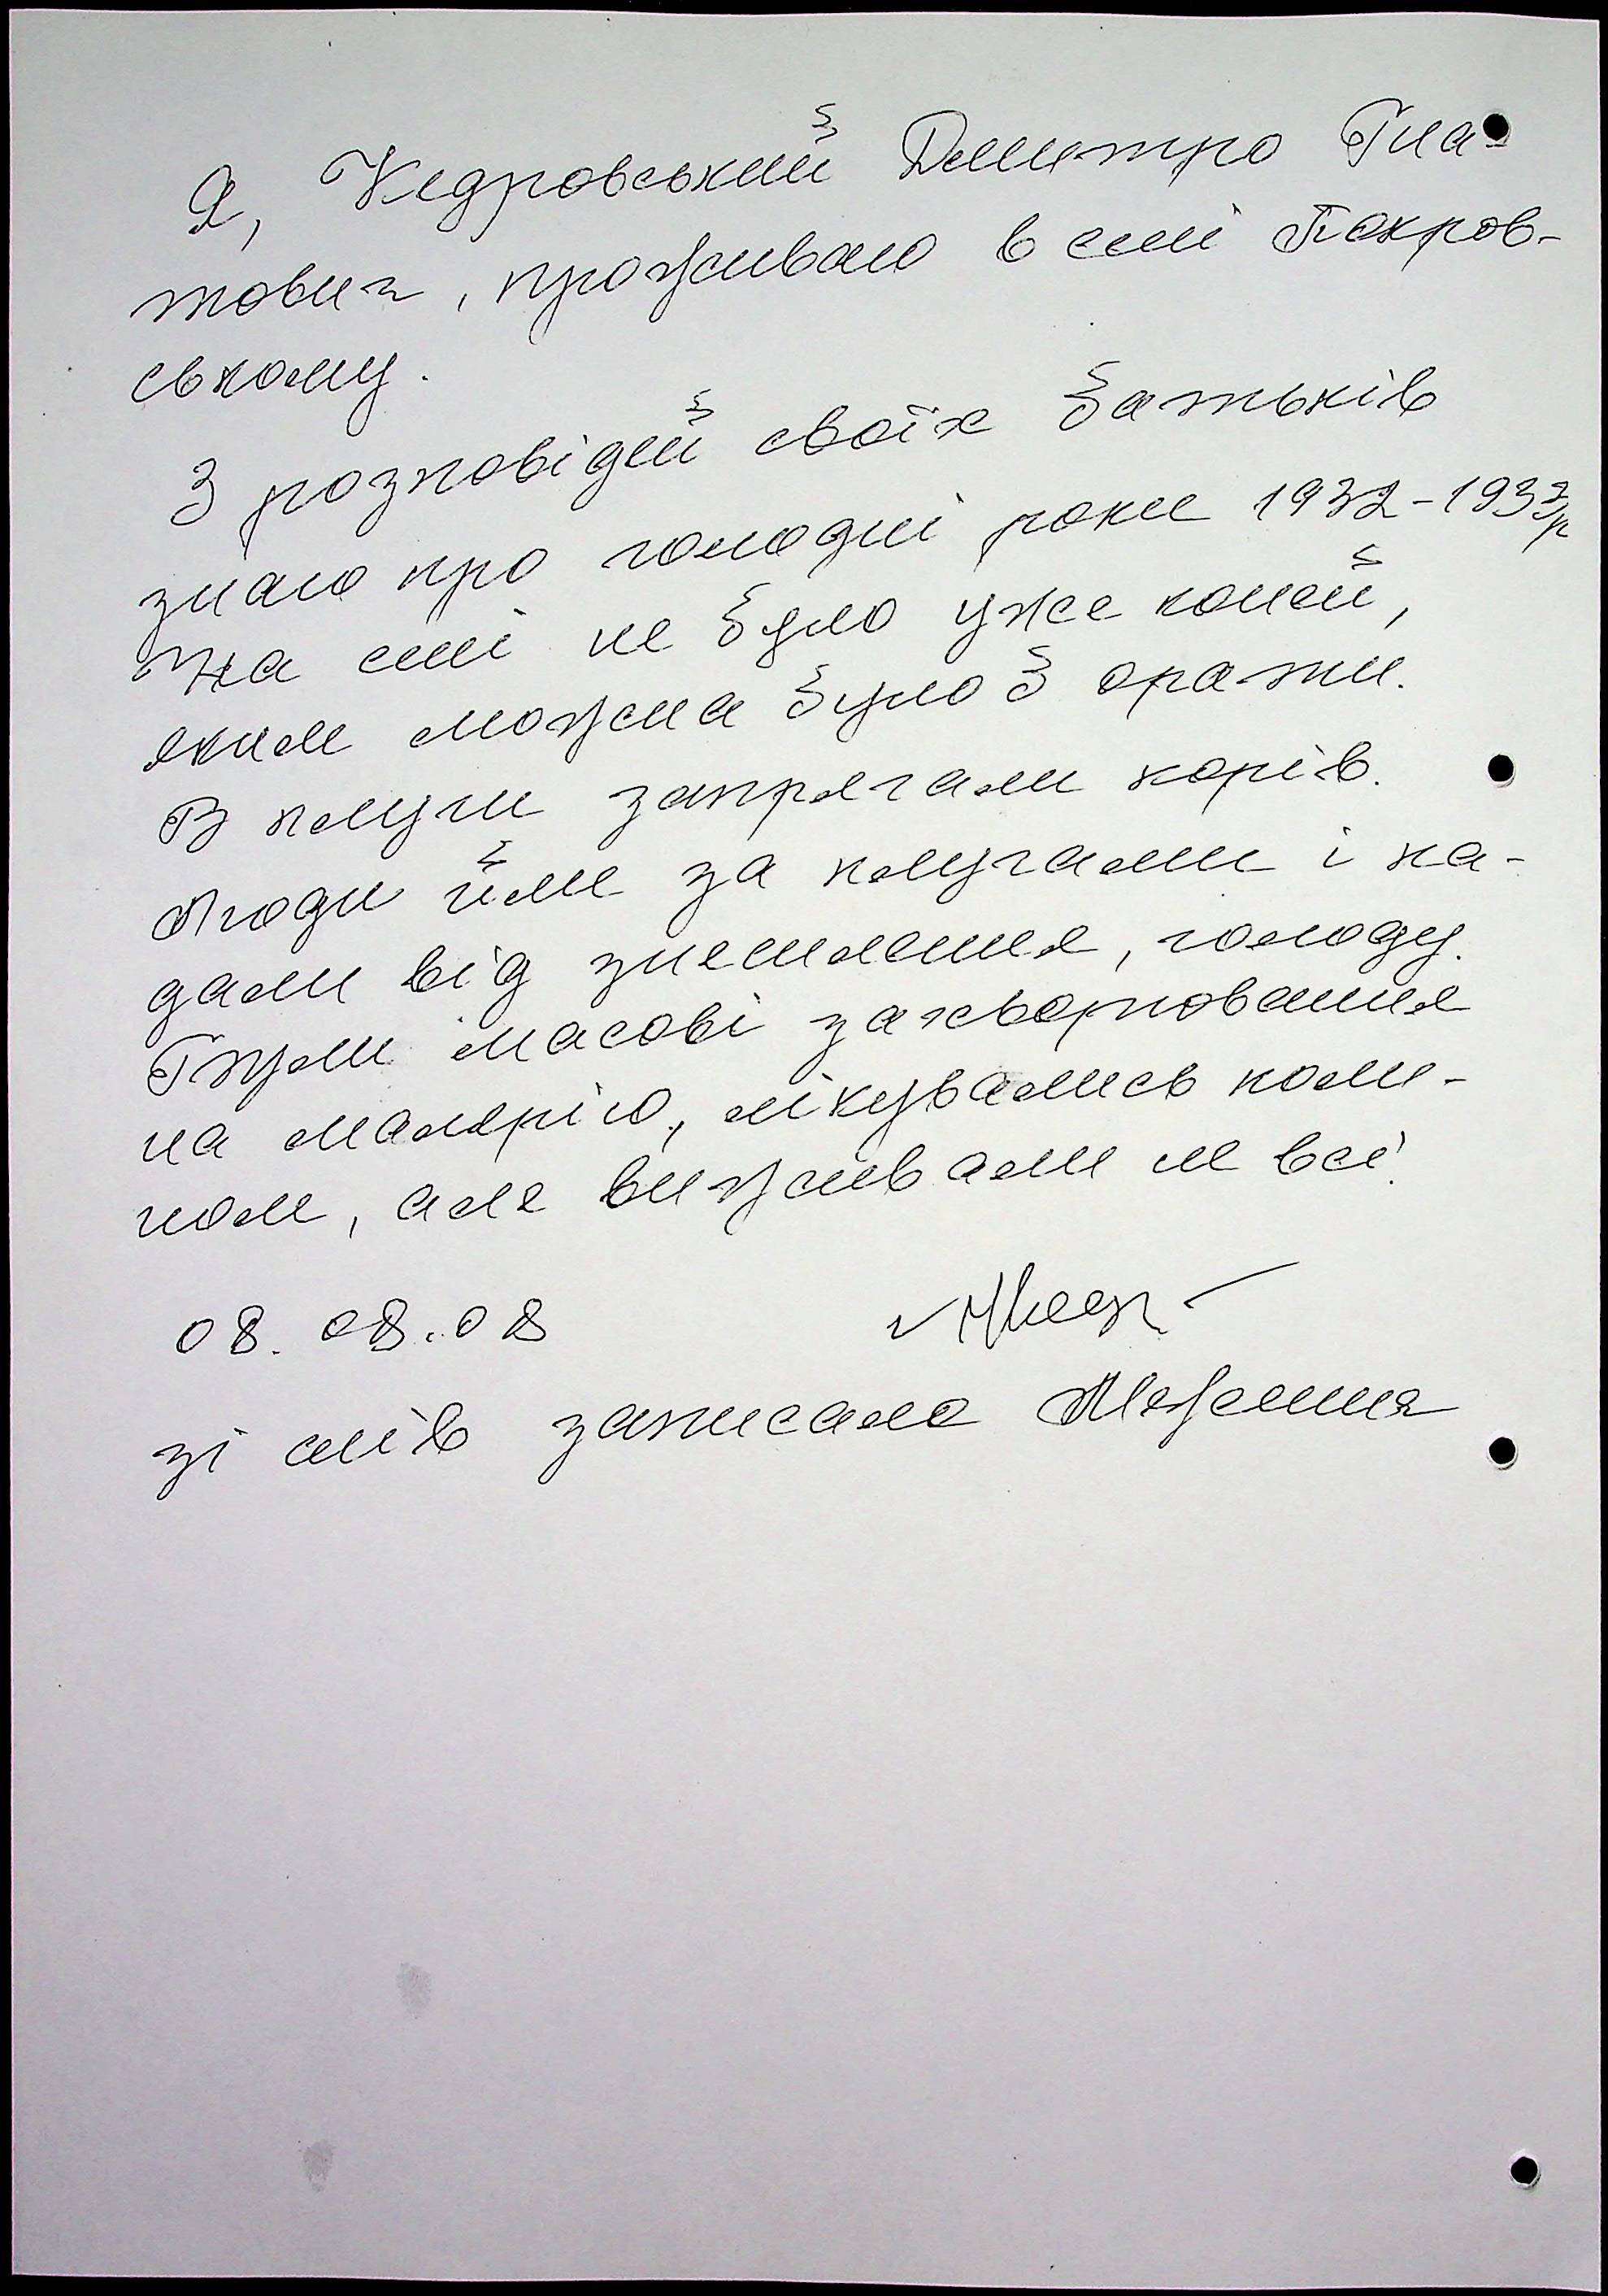 Я, Кедровський Дмитро Гна-
тович, проживаю в селі Покров-
ському.
З розповідей своїх батьків
знаю про голодні роки 1932-1933р
На селі не було уже коней,
яким можна було б орати.
В плуги запрягали корів.
Люди йшли за плугами і па-
дали від знесилення, голоду.
Були масові захворювання
на малярію, лікувались поли-
ном, але виживали не всі.
08. 08. 08
зі слів записала